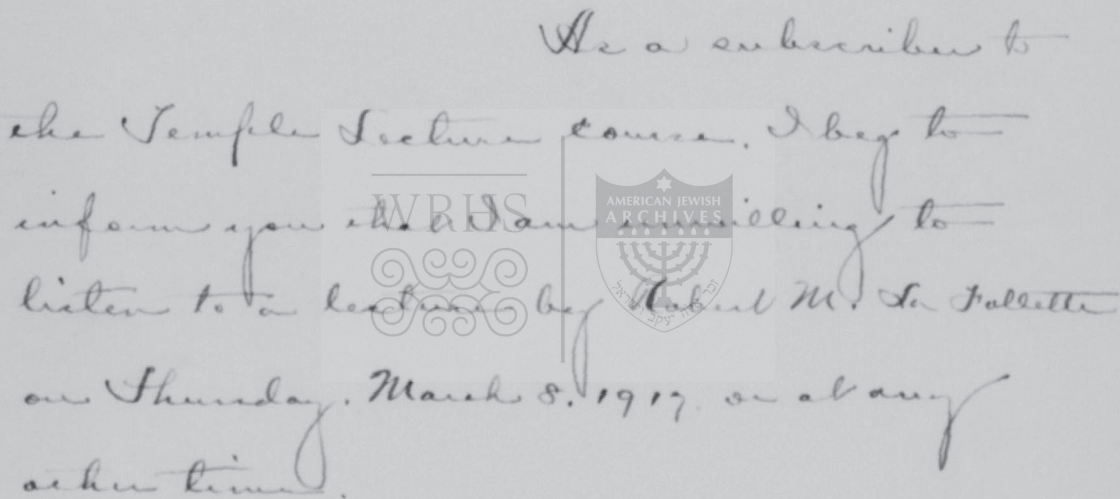 As a subscriber to
the Temple Lecture course, I beg to
inform you that I am unwilling to
listen to a lecture by Robert M. La Follette
on Thursday, March 8, 1917 or at any
other time.
WRHS
AMERICAN JEWISH
ARCHIVES